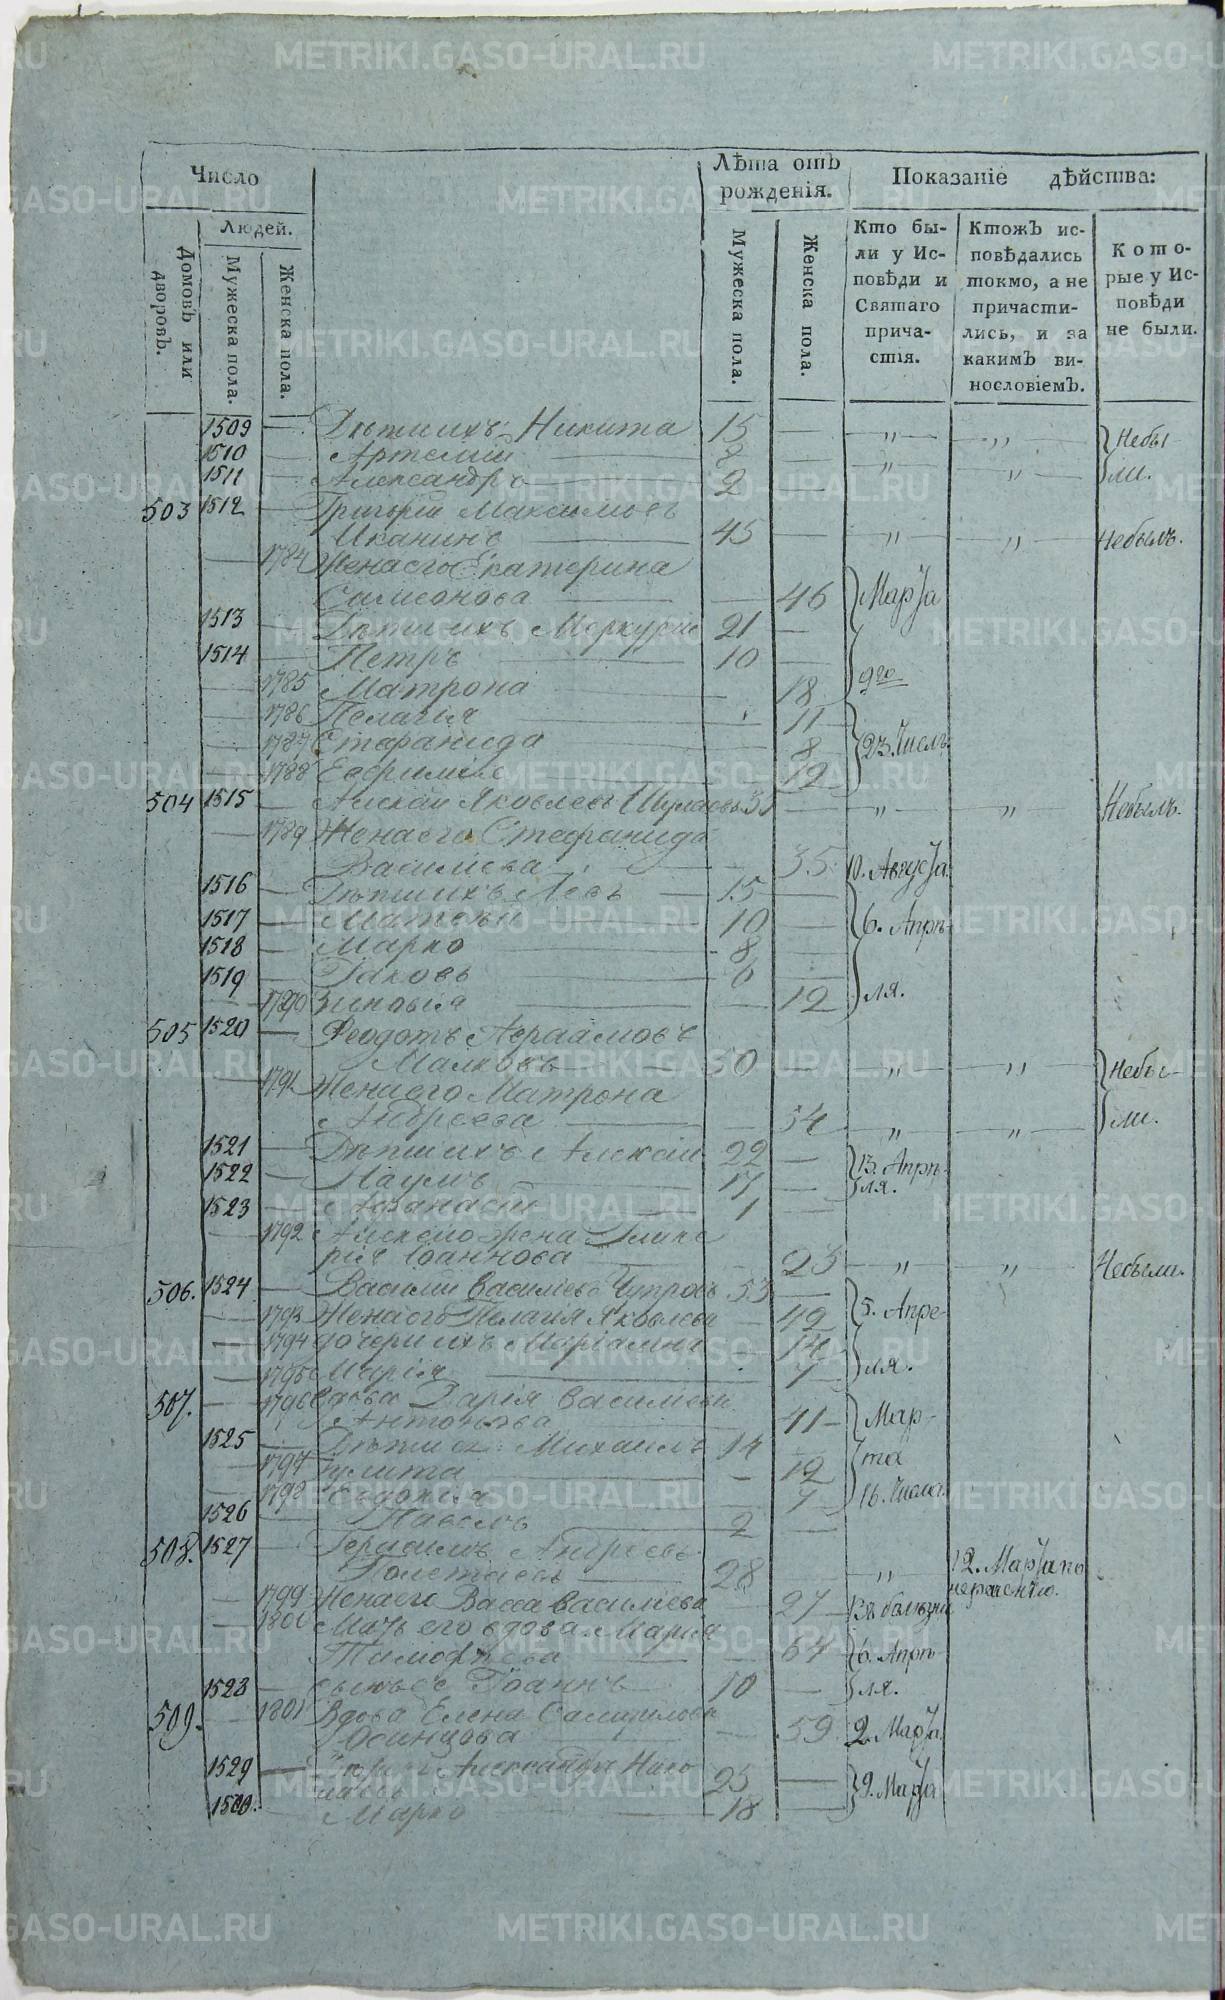 Число
Лѣта отъ рожденія.
Показаніе дѣйства:
Людей.
Домовъ или дворовъ.
Мужеска пола.
Женска пола.
Мужеска пола.
Женска пола.
Кто были у Исповѣди и Святаго причастія.
Ктожъ исповѣдались токмо, а не причастились, и за какимъ винословіемъ.
Которые у Исповѣди не были.
1509 — Дѣти ихъ Никита 15 — „ — „ — Небы-
1510 — Артемій —
1511 — Александръ 2 — „ — „ — ли.
503 1512 — Григорій Максимовъ
Иканинъ — 45 — „ — „ — Небылъ.
— 1784 Жена его Екатерина
Симеонова — — 46 Марта
1513 — Дѣти ихъ Меркурие 21 —
1514 — Петръ — 10 — 9го
— 1785 Матрона — 18
— 1786 Пелагія — 11
— 1787 Стефанида — 8 23. Числъ
— 1788 Евфимія — 12
504 1515 — Алексѣй Яковлевъ — „ — „ — Небылъ.
— 1789 Жена его Стефанида
Василіева — 35 10. Августа
1516 — Дѣти ихъ Левъ — 15 —
1517 — Матѳей — 10 — 6. Апрѣ-
1518 — Марко — 8 —
1519 — Іаковъ — 6 — ля.
— 1790 Зиновія — — 12
505 1520 — Феодотъ Авраамовъ
Малковъ — 50 — „ — „ — Небы-
— 1791 Жена его Матрона
Андреева — — 54 „ — „ — ли.
1521 — Дѣти ихъ Алексѣй 22 — 13. Апрѣ-
1522 — Наумъ — 17 — ля.
1523 — Афанасій — 1 —
— 1792 Алексѣю жена Глике
рія Іоаннова — — 23 — „ — „ — Небыли.
506. 1524 — Василий Василіевъ Чупровъ 53 —
— 1793 Жена его Пелагія Яковлева — 42 5. Апре-
— 1794 дочери ихъ Маріамна — 14
— 1795 Марія — 7 ля.
507. — 1796 вдова Дарія Василіева
Антонова — 41 — Мар-
1525 — Дѣти ея Михаилъ 14 — та
— 1797 Іулита — — 12
— 1798 Евдокія — 7 16. Числа
1526 — Павелъ — 2 —
508. 1527 — Герасимъ Андреевъ
Полетаевъ — 28 — „ — 12. Марта по
нераченію.
— 1799 Жена его Васса Василіева — 27 — Въ болѣзни
— 1800 Мать его вдова Марія
Тимофѣева — — 64 6. Апрѣ-
1528 — Іоаннъ — 10 — ля.
509. — 1801 Вдова Елена Самуилова
Одинцова — — 59 2. Марта
1529 — Александръ Нико
лаевъ 25 — 9. Марта
Марко — 18 —
METRIKI.GASO-URAL.RU